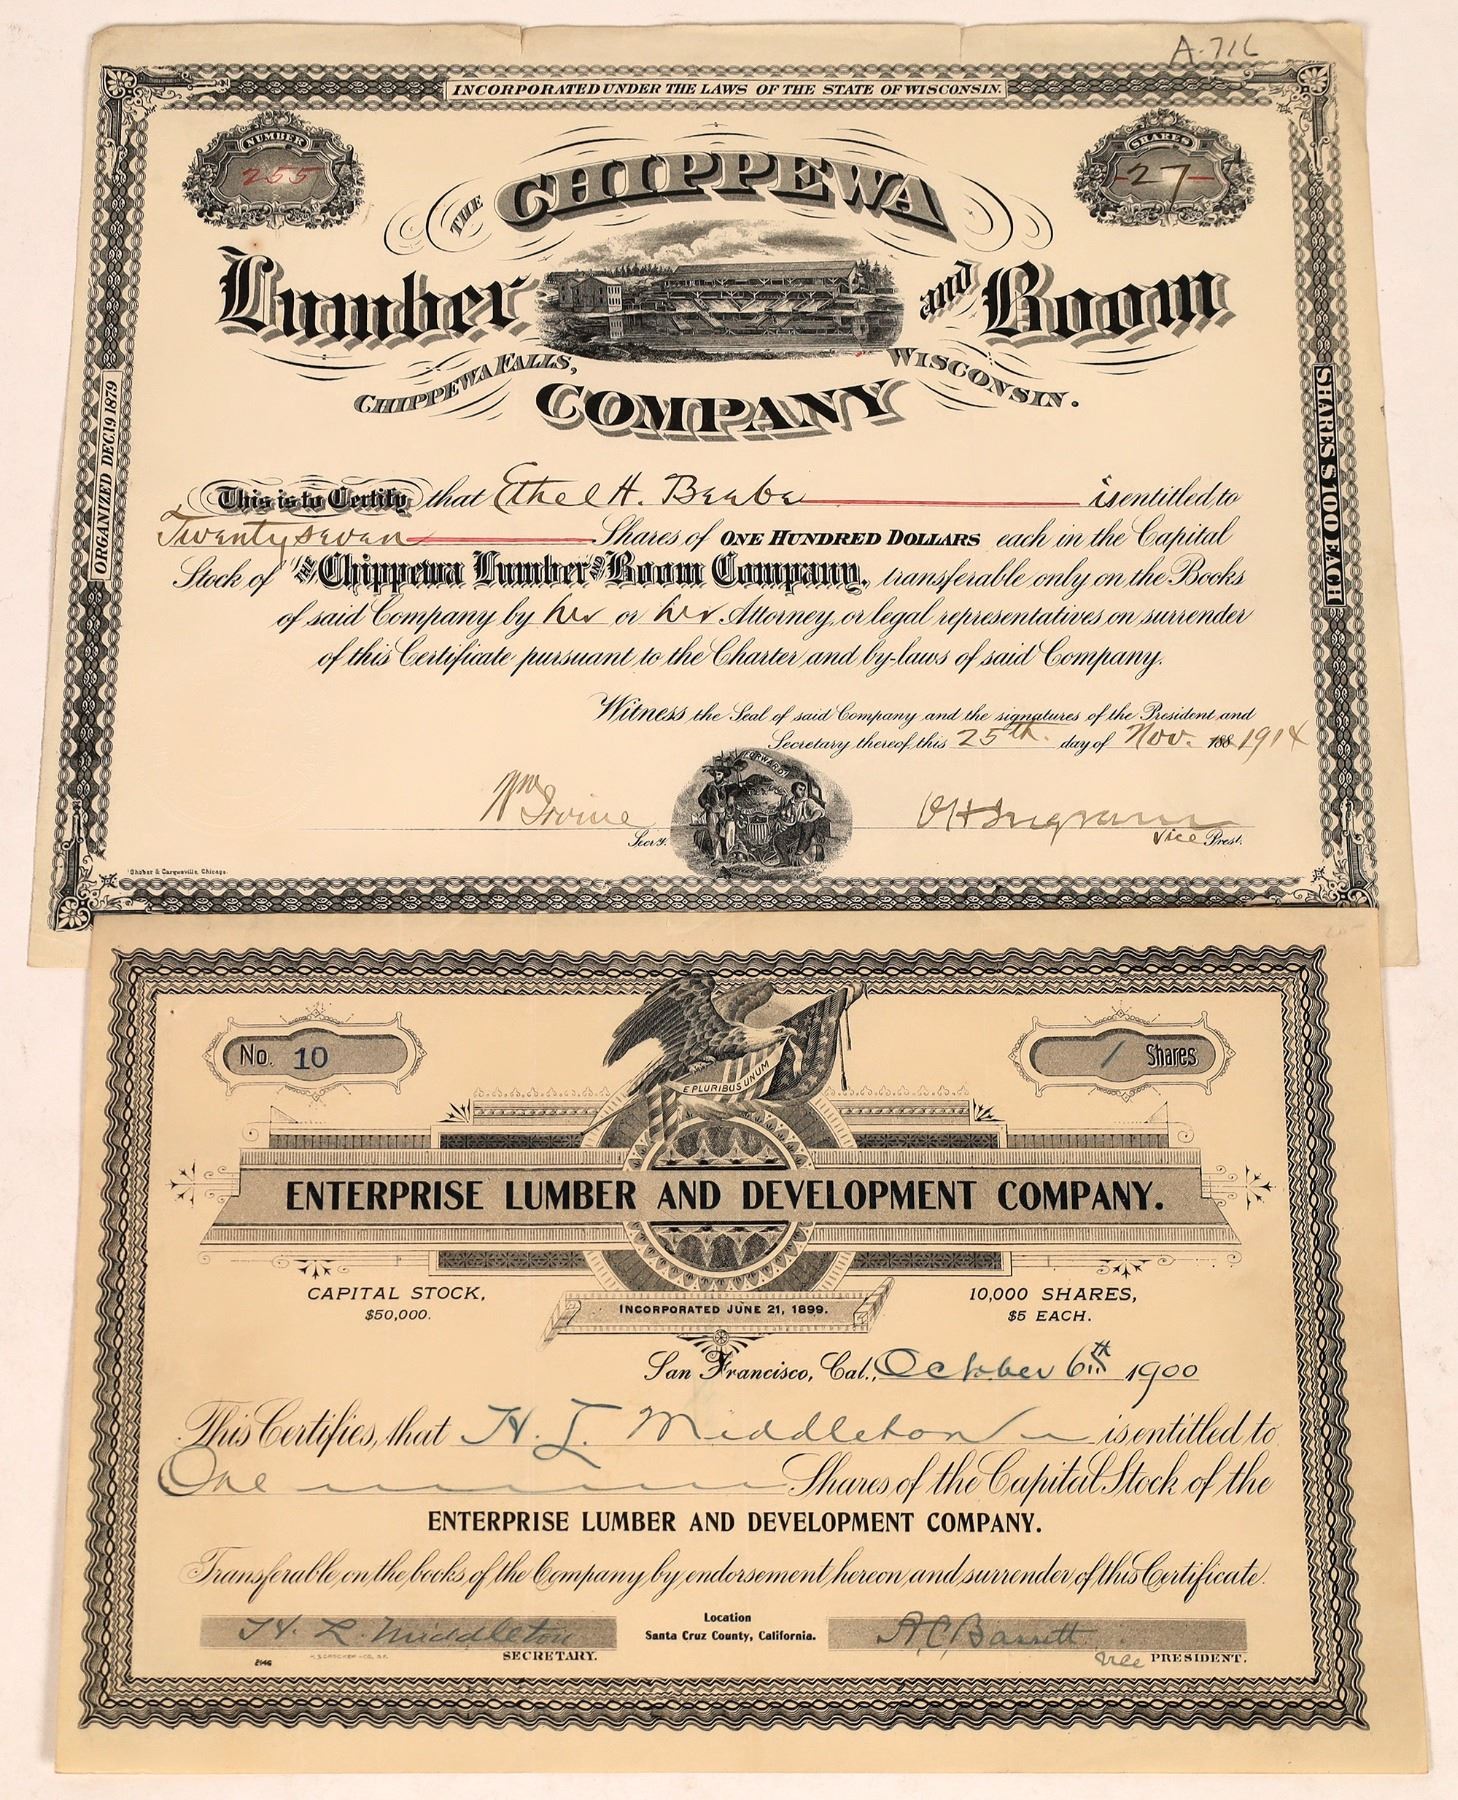 A-716
INCORPORATED UNDER THE LAWS OF THE STATE OF WISCONSIN.
NUMBER
255
SHARES
27
THE CHIPPEWA
Lumber and Boom
CHIPPEWA FALLS, WISCONSIN.
COMPANY
ORGANIZED DEC. 19 1879
SHARES $100 EACH
This is to Certify that Ethel H. Beebe is entitled to
Twenty seven Shares of ONE HUNDRED DOLLARS each in the Capital
Stock of "THE Chippewa Lumber AND Boom Company, transferable only on the Books
of said Company by her or her Attorney, or legal representatives on surrender
of this Certificate pursuant to the Charter and by-laws of said Company.
Witness the Seal of said Company and the signatures of the President and
Secretary thereof, this 25th day of Nov. 188 1914
FORWARD
Wm Irvine
Secr'y.
O H Ingram
Vice Prest.
Shober & Carqueville, Chicago.
No. 10
1 Shares
E PLURIBUS UNUM
ENTERPRISE LUMBER AND DEVELOPMENT COMPANY.
CAPITAL STOCK,
$50,000.
INCORPORATED JUNE 21, 1899.
10,000 SHARES,
$5 EACH.
San Francisco, Cal., October 6th 1900
This Certifies, that H. L. Middleton is entitled to
One Shares of the Capital Stock of the
ENTERPRISE LUMBER AND DEVELOPMENT COMPANY.
Transferable on the books of the Company by endorsement hereon and surrender of this Certificate.
H. L. Middleton
SECRETARY.
Location
Santa Cruz County, California.
A C Barrett
Vice PRESIDENT.
2146
H.S. CROCKER CO. S.F.